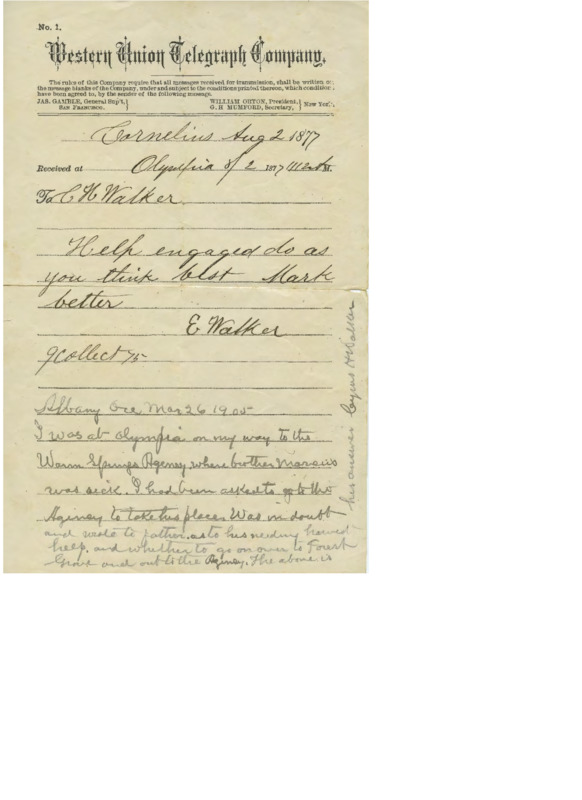 No. 1.
Western Union Telegraph Company.
The rules of this Company require that all messages received for transmission, shall be written on
the message blanks of the Company, under and subject to the conditions printed thereon, which conditions
have been agreed to, by the sender of the following message.
JAS. GAMBLE, General Sup't, WILLIAM ORTON, President,
SAN FRANCISCO. G. H MUMFORD, Secretary, New York.
Cornelius Aug 2 1877
Received at Olympia 8/2 1877 M.
To C H Walker
Help engaged do as
you think best Mark
better
E Walker
9 Collect 75
Albany Ore Mar 26 1905
I was at Olympia on my way to the
Warm Springs Agency where brother Marcus
was sick. I had been asked to go to the
Agency to take his place. Was in doubt
and wrote to father, as to his needing harvest
help, and whether to go on over to Forest
Grove and out to the Agency. The above is
his answer Cyrus H Walker